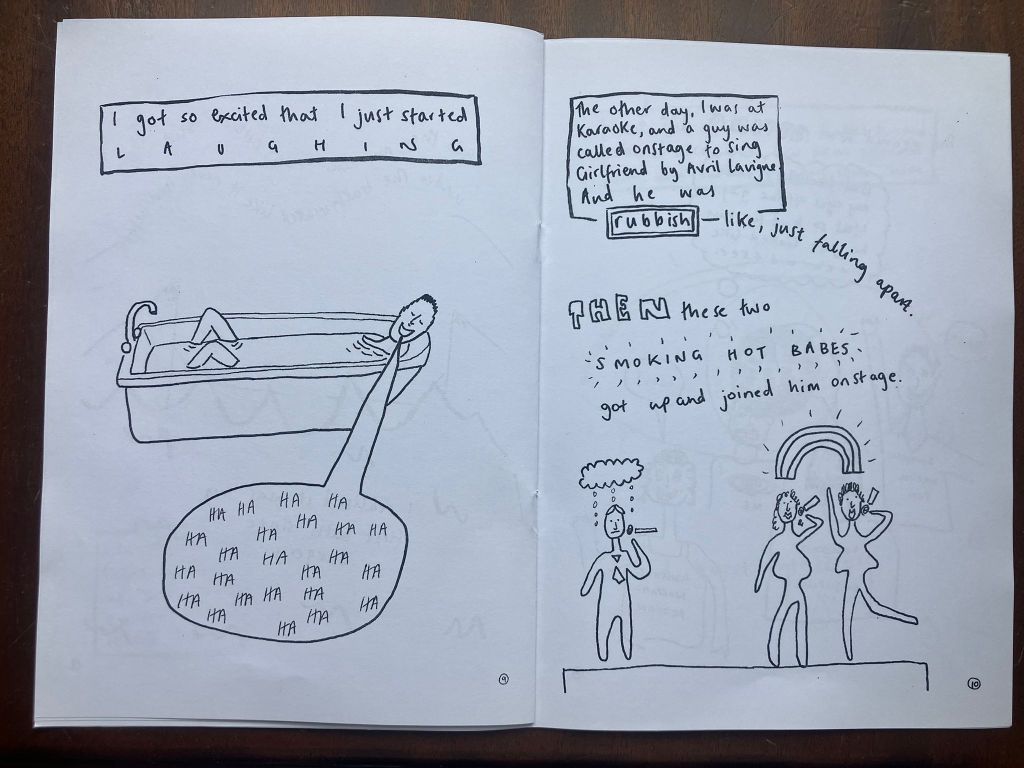 I got so excited that I just started
L A U G H I N G
HA HA HA HA
HA HA HA HA HA
HA HA HA
HA HA HA HA
HA HA HA HA HA
HA HA HA
9
The other day, I was at
Karaoke, and a guy was
called onstage to sing
Girlfriend by Avril Lavigne.
And he was
rubbish — like, just falling apart.
THEN these two
SMOKING HOT BABES
got up and joined him onstage.
10